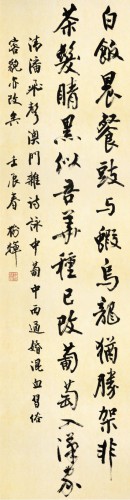 白飯晨餐豉与蝦烏龍猶勝架非
茶髮睛黑似吾華種已改葡萄入漢家
清潘飛聲澳門雜詩詠中葡中西通婚混血習俗
容貌亦改矣 壬辰春